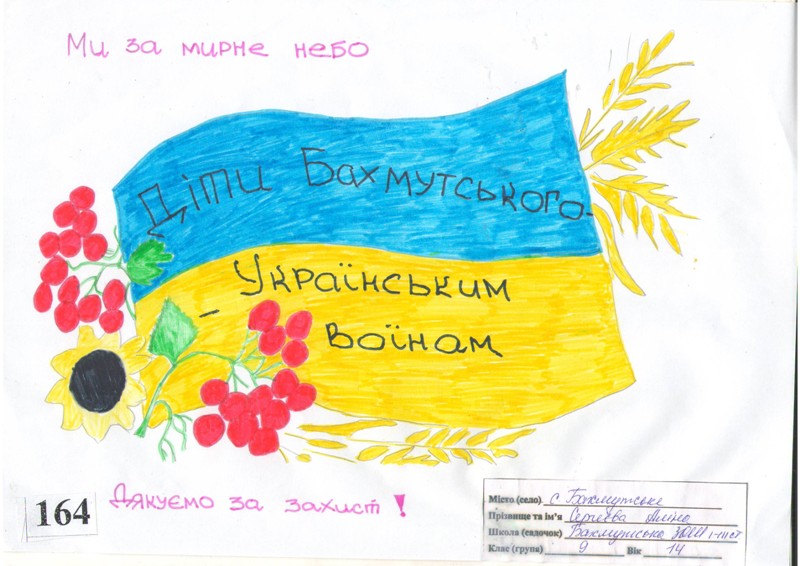 Ми за мирне небо
Діти Бахмутського-
- Українським
воїнам
Дякуємо за захист!
164
Місто (село) с Бахмутське
Прізвище та ім'я Сергеєва Аліна
Школа (садочок) Бахмутська ЗОШ І-ІІІ ст
Клас (група) 9 Вік 14